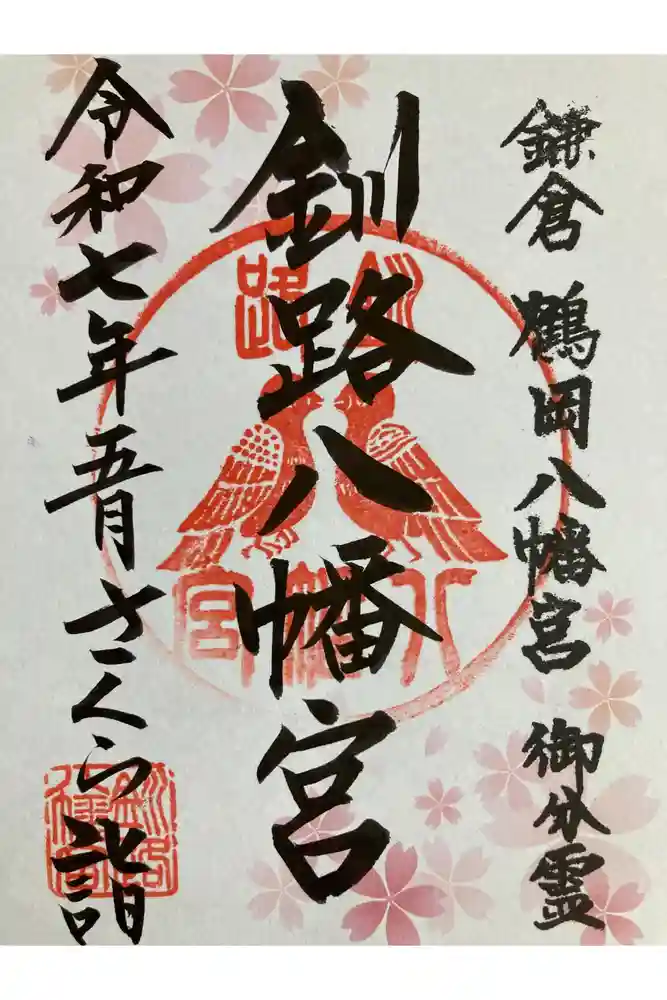 鎌倉 鶴岡八幡宮 御分霊
釧路八幡宮
釧路
八幡宮
令和七年五月さくら詣